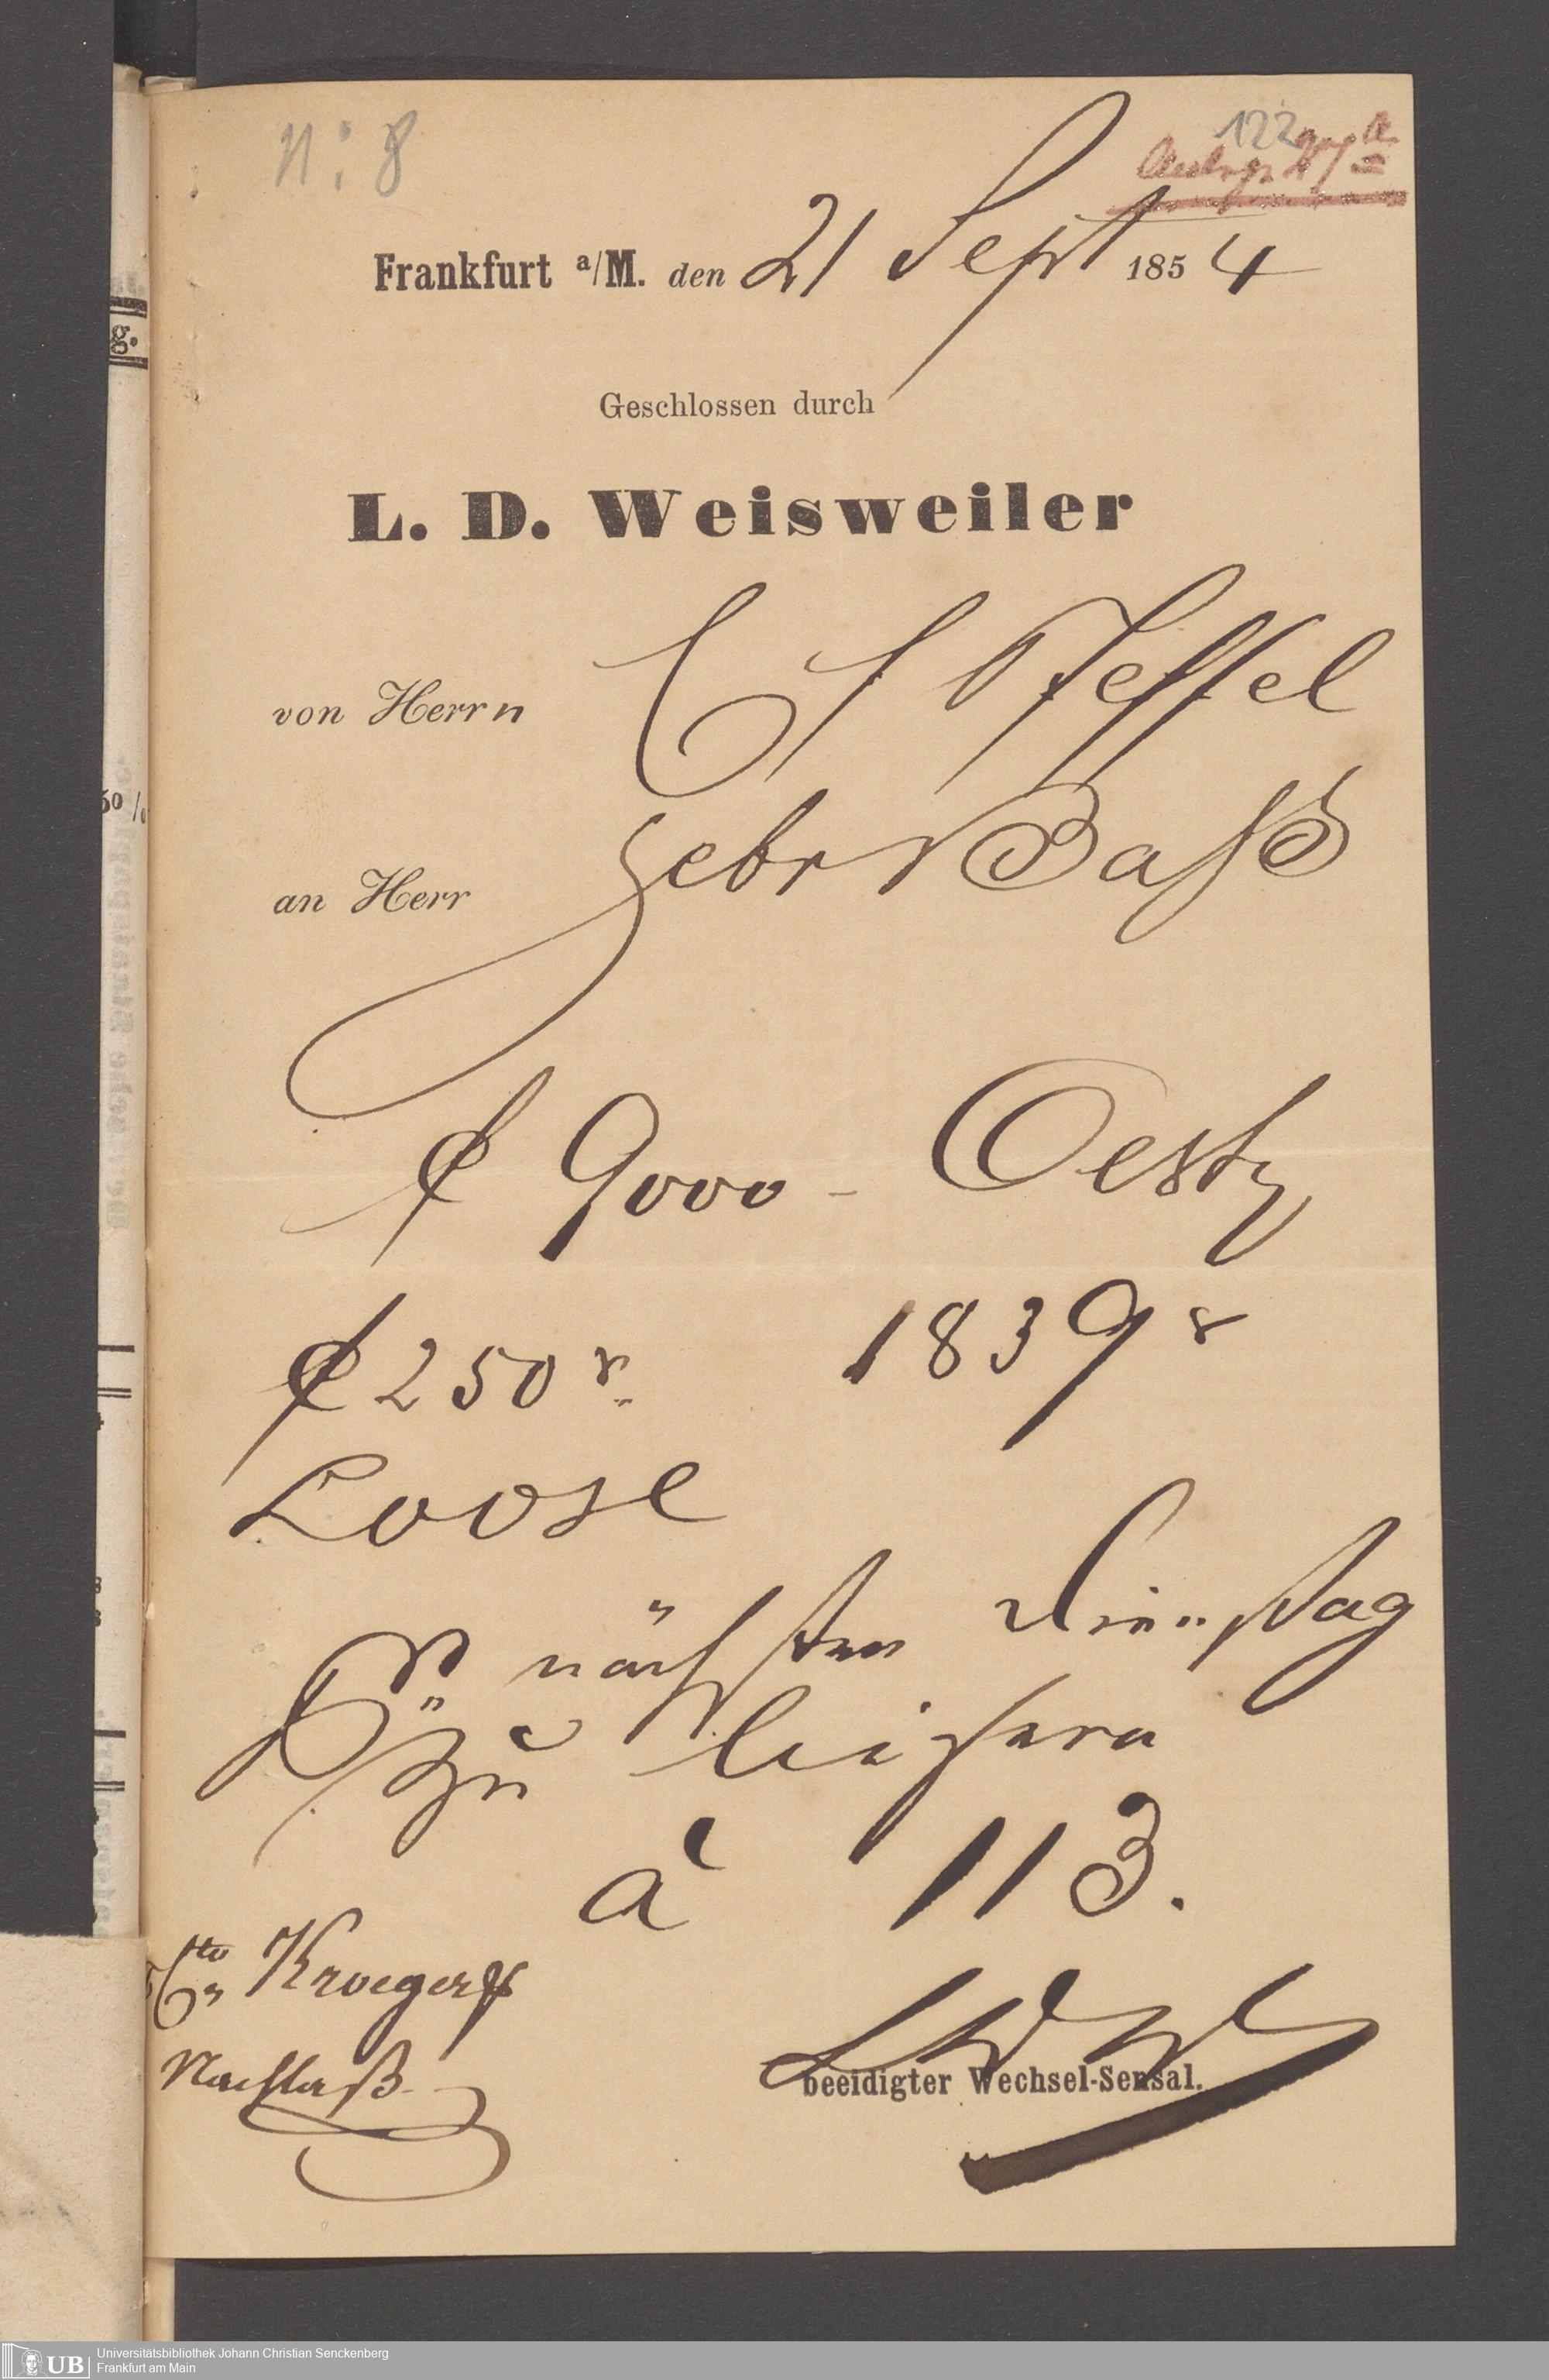 n: 8
122
Frankfurt a/M. den 21 Sept 1854
Geschlossen durch
L. D. Weisweiler
von Herrn
an Herr Gebr Bass
f 9000 - Oestr
f 250r 1839r
Loose
nächsten Dienstag
zu liefern
à 113.
Cto Kroeger
Nachlaß
beeidigter Wechsel-Sensal.
g.
UB
Universitätsbibliothek Johann Christian Senckenberg
Frankfurt am Main